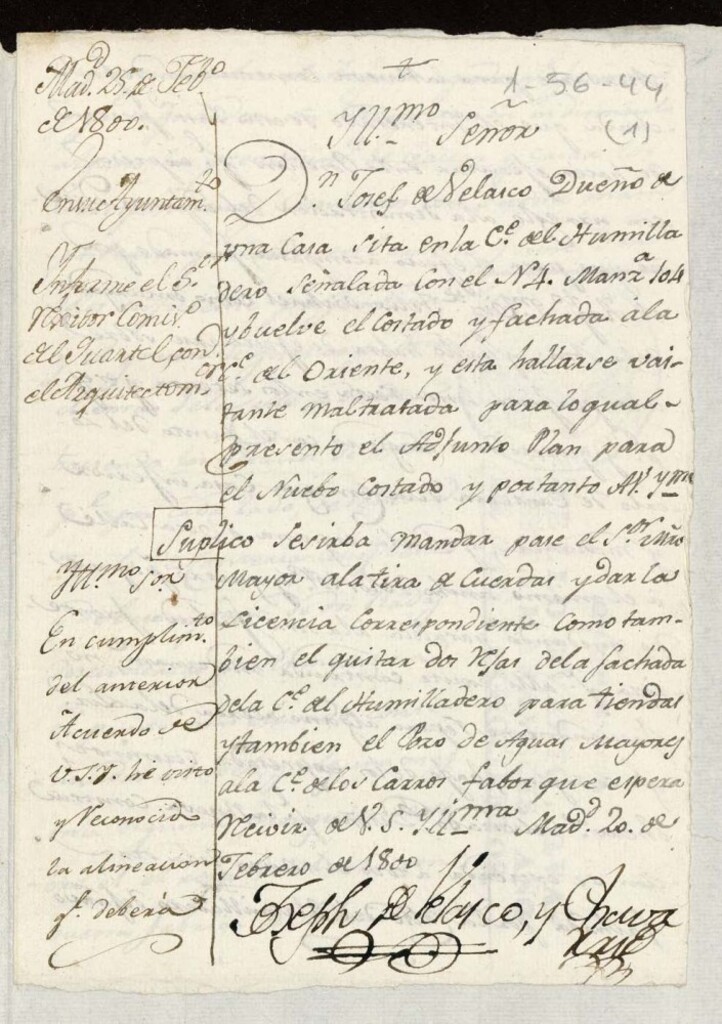 1-36-44
(1)
Mad.d 25 de Feb.o
de 1800.
En su Ayuntam.to
Informe el S.or
Rexidor Comis.o
del Quartel con
el Arquitecto m.or
Yll.mo Sor
En cumplim.to
del anterior
Acuerdo de
V.S.Y. he visto
y Reconocido
la alineacion
q.e debera
+
Yll.mo Señor
D.n Josef de Velasco Dueño de
una Casa sita en la C.e del Humilla
dero señalada con el N 4. Manz.a 104
y buelve el Costado y fachada á la
C.e del Oriente, y esta hallarse vas-
tante maltratada para lo qual
presento el Adjunto Plan para
el Nuebo Costado y por tanto A V. Y.ma
Suplico se sirba mandar pase el S.or Mro
Mayor a la tira de Cuerdas y dar la
Licencia Correspondiente como tam-
bien el quitar dos Rejas de la fachada
de la C.e del Humilladero para tiendas
y tambien el Pozo de Aguas Mayores
a la C.e de los Carros fabor que espera
Recivir de V. S. Yll.ma Mad.d 20. de
Febrero de 1800
Joseph de Velasco, y